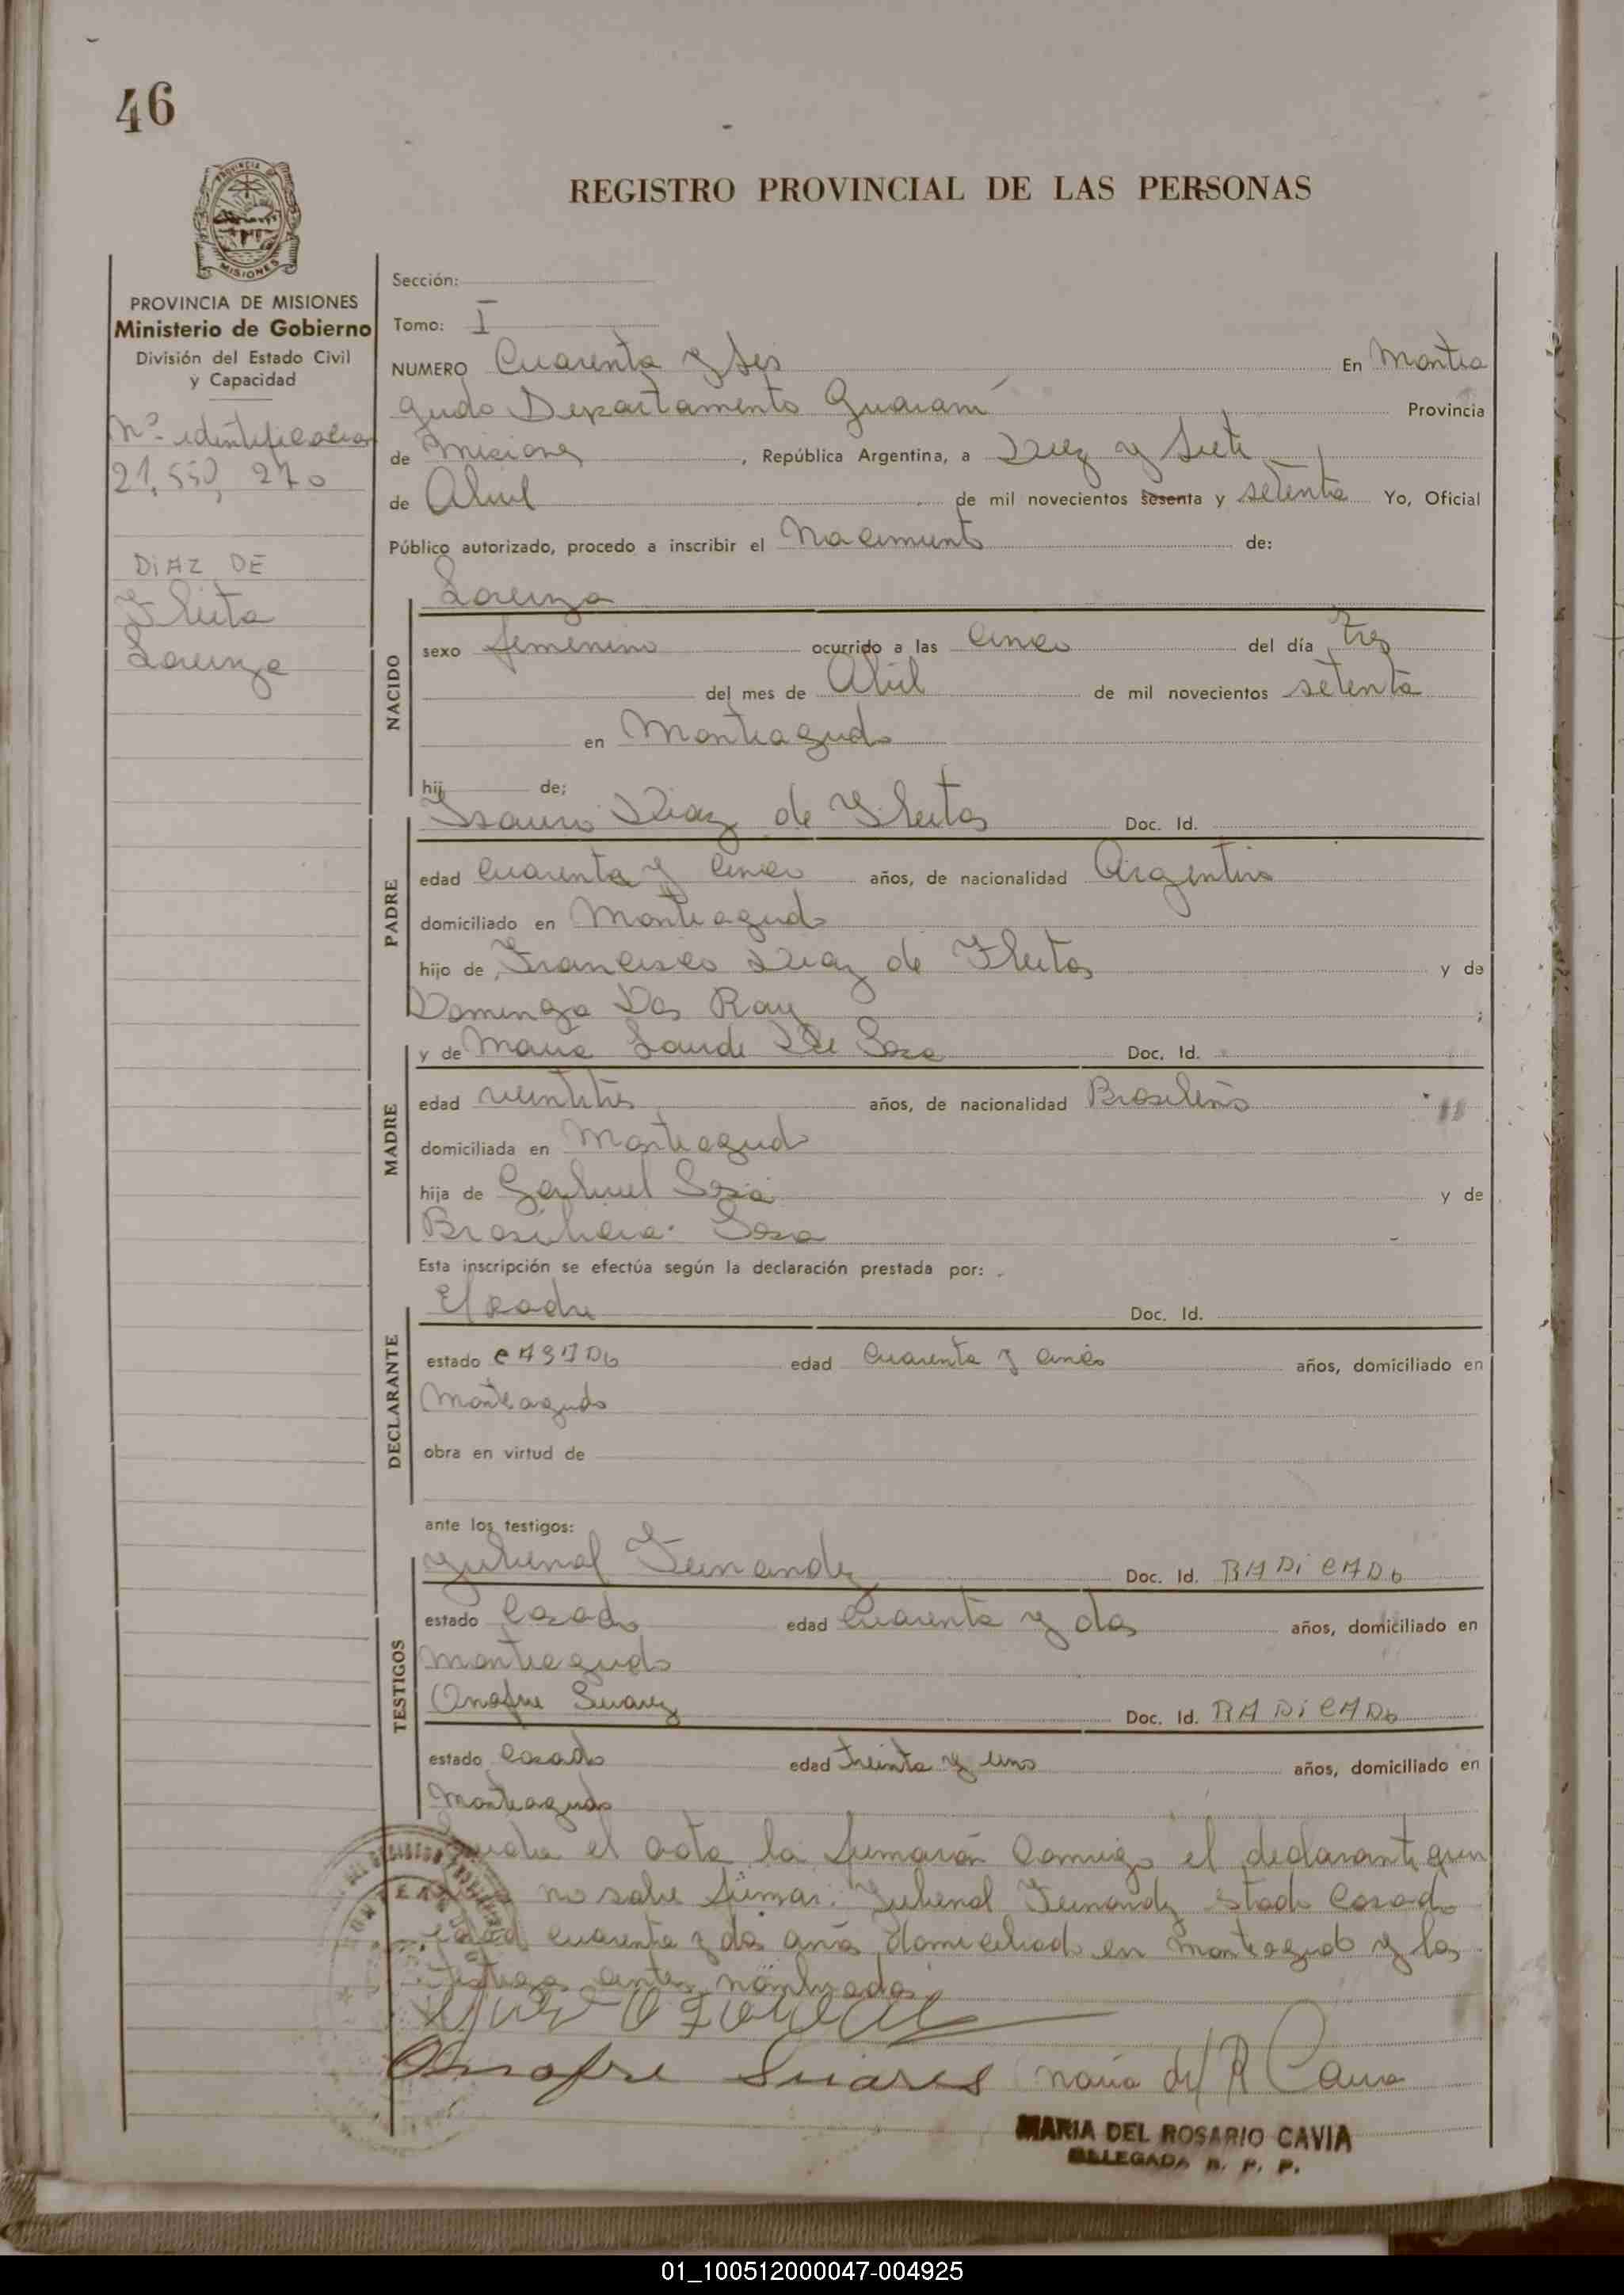 46
REGISTRO PROVINCIAL DE LAS PERSONAS
PROVINCIA DE MISIONES
Ministerio de Gobierno
División del Estado Civil
y Capacidad
Nº identificacion
21.550,270
DiAZ DE
Fleita
Lorenza
Sección:
Tomo: I
NUMERO Cuarenta y seis En Montea
gudo Departamento Guaraní Provincia
de Misiones, República Argentina, a Diez y siete
de Abril de mil novecientos sesenta y setenta Yo, Oficial
Público autorizado, procedo a inscribir el Nacimiento de:
Lorenza
NACIDO
sexo femenino ocurrido a las Cinco del día tres
del mes de Abril de mil novecientos setenta
en Monteagudo
hij de:
PADRE
Isauro Diaz de Fleitas Doc. Id.
edad Cuarenta y Cinco años, de nacionalidad Argentino
domiciliado en Monteagudo
hijo de Francisco Diaz de Fleitas y de
Dominga Dos Ray ;
MADRE
y de Maria Lourde De Sosa Doc. Id.
edad veintitres años, de nacionalidad Brasileña
domiciliada en Monteagudo
hija de Gabriel Sosa y de
Sosa
Esta inscripción se efectúa según la declaración prestada por:
DECLARANTE
El padre Doc. Id.
estado CASADO edad Cuarenta y cinco años, domiciliado en
Monteagudo
obra en virtud de
ante los testigos:
TESTIGOS
Jubenal Fernandez Doc. Id. RADiCADO
estado Casado edad Cuarenta y dos años, domiciliado en
Monteagudo
Onofre Suarez Doc. Id. RADiCADO
estado Casado edad treinta y uno años, domiciliado en
Monteagudo
el acta la firmarán Conmigo el declarante quien
no sabe firmar: Jubenal Fernandez Estado Casado
edad cuarenta y dos años domiciliado en Monteagudo y los
testigos antes nombrados
Onofre Suáres Maria del R Cavia
MARIA DEL ROSARIO CAVIA
DELEGADA R. P. P.
01_100512000047-004925